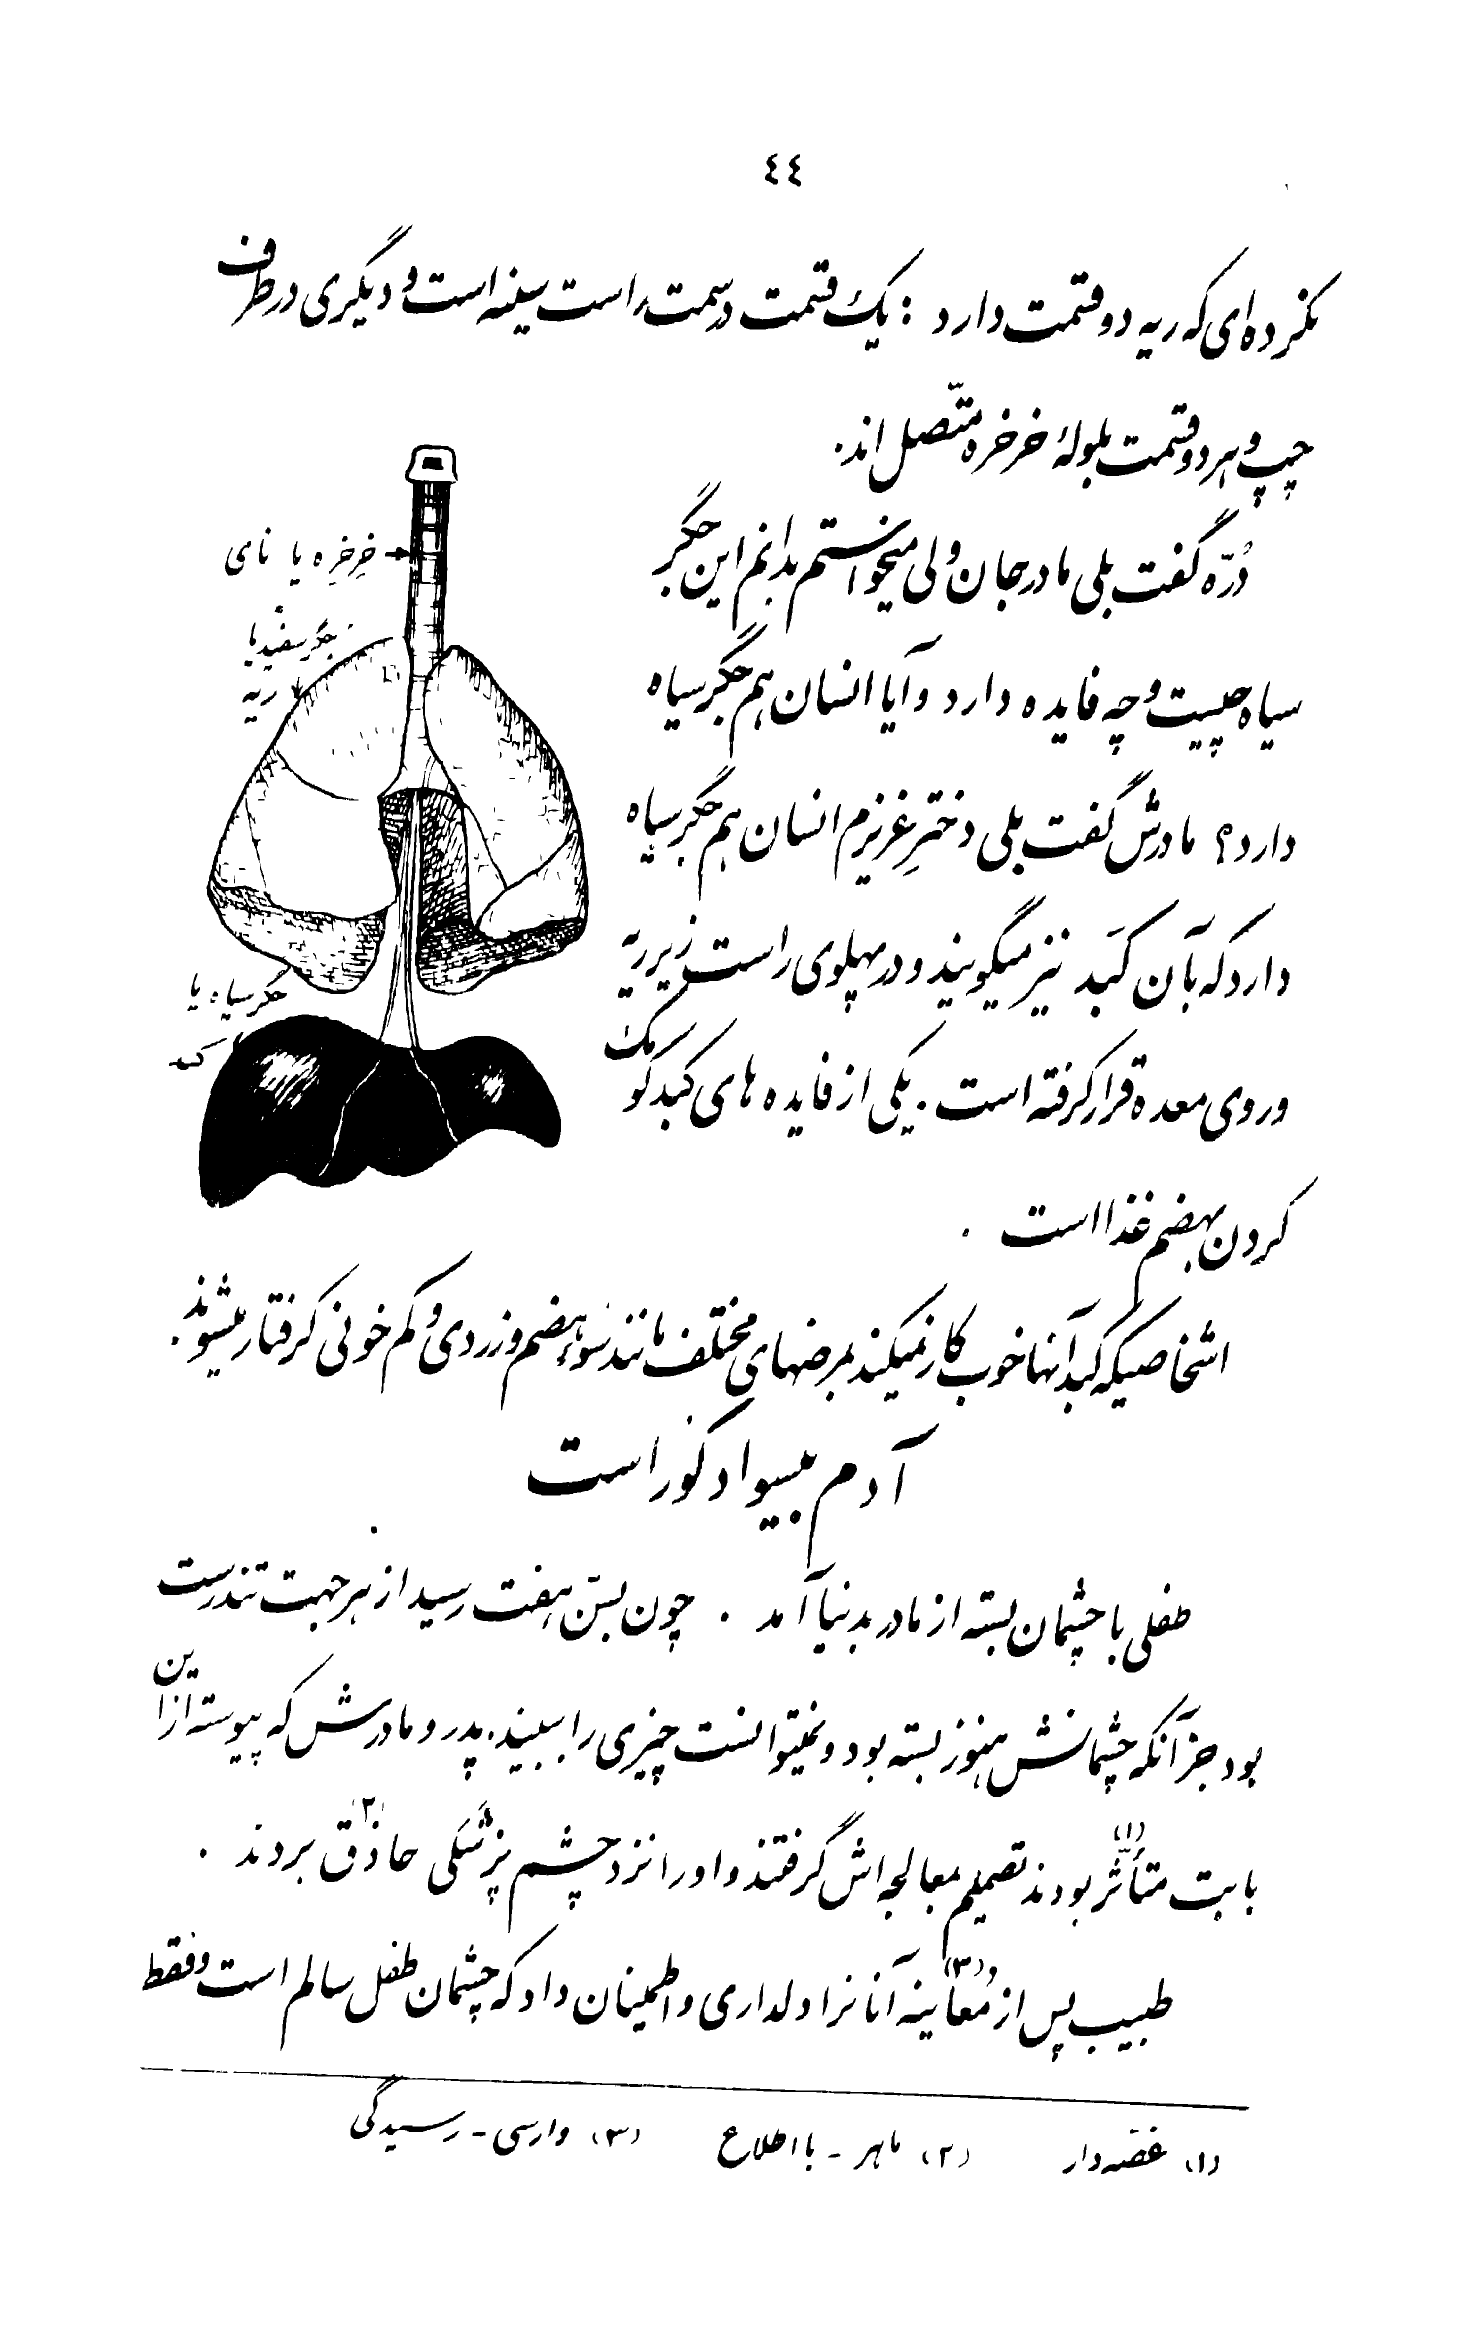 ٤٤
نکرده‌ای که ریه دو قسمت دارد : یک قسمت در سمت راست سینه است و دیگری در طرف
چپ و هر دو قسمت بلولهٔ خرخره متّصل اند.
دُرّه گفت بلی مادر جان ولی میخواستم بدانم این جگر
سیاه چیست و چه فایده دارد و آیا انسان هم جگر سیاه
دارد؟ مادرش گفت بلی دخترِ عزیزم انسان هم جگر سیاه
دارد که بآن کَبَد نیز میگویند و در پهلوی راست زیر ریه
و روی معده قرار گرفته است . یکی از فایده های کبد کومک
کردن بهضم غذا است .
خِرخِره یا نای
جگر سفید یا
ریه
جگر سیاه یا
کبد
اشخاصیکه کبد آنها خوب کار نمیکند بمرضهای مختلف مانند سُوءِ هضم و زردی و کم خونی گرفتار میشوند .
آدم بیسواد کور است
طفلی با چشمان بسته از مادر بدنیا آمد . چون بسنّ هفت رسید از هر جهت تندرست
بود جز آنکه چشمانش هنوز بسته بود و نمیتوانست چیزی را ببیند . پدر و مادرش که پیوسته از این
بابت متأثّر (۱) بودند تصمیم بمعالجه اش گرفتند و او را نزد چشم پزشکی حاذق (۲) بردند .
طبیب پس از مُعاینه (۳) آنانرا دلداری و اطمینان داد که چشمان طفل سالم است و فقط
(۱) غصّه دار (۲) ماهر - با اطلاع (۳) وارسی - رسیدگی